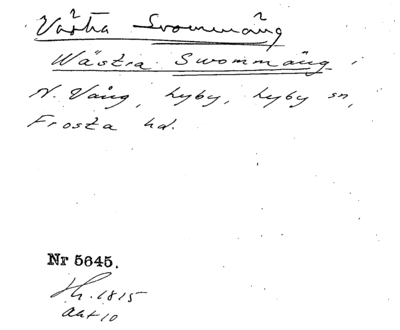 Västra Svommäng
Wästra Swommäng,
N. Vång, Lyby, Lyby sn,
Frosta hd.
Nr 5645.
1815
akt 10